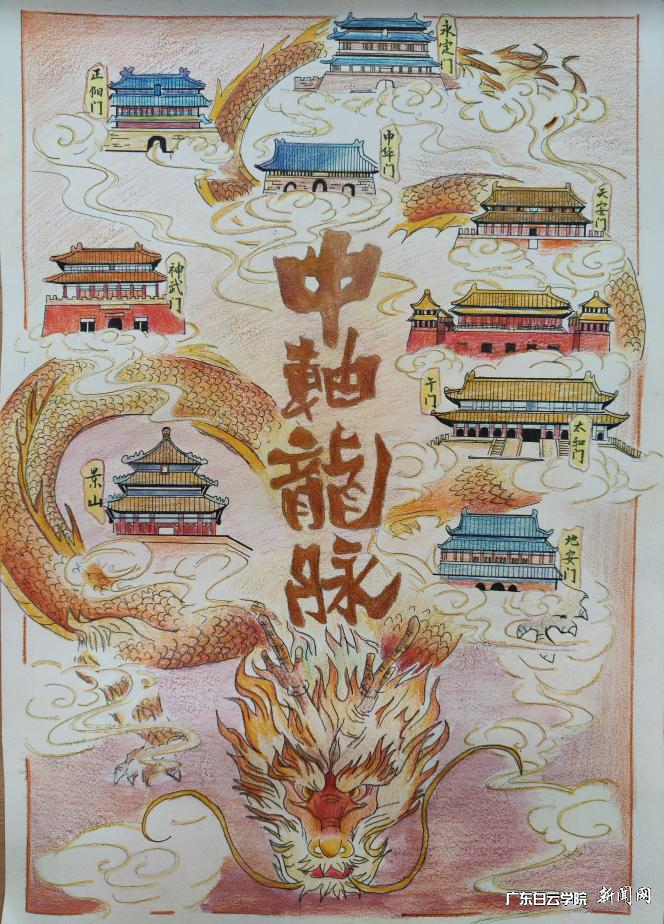 永定门
正阳门
中华门
天安门
神武门
午门
太和门
景山
地安门
中軸龍脉
广东白云学院 新闻网